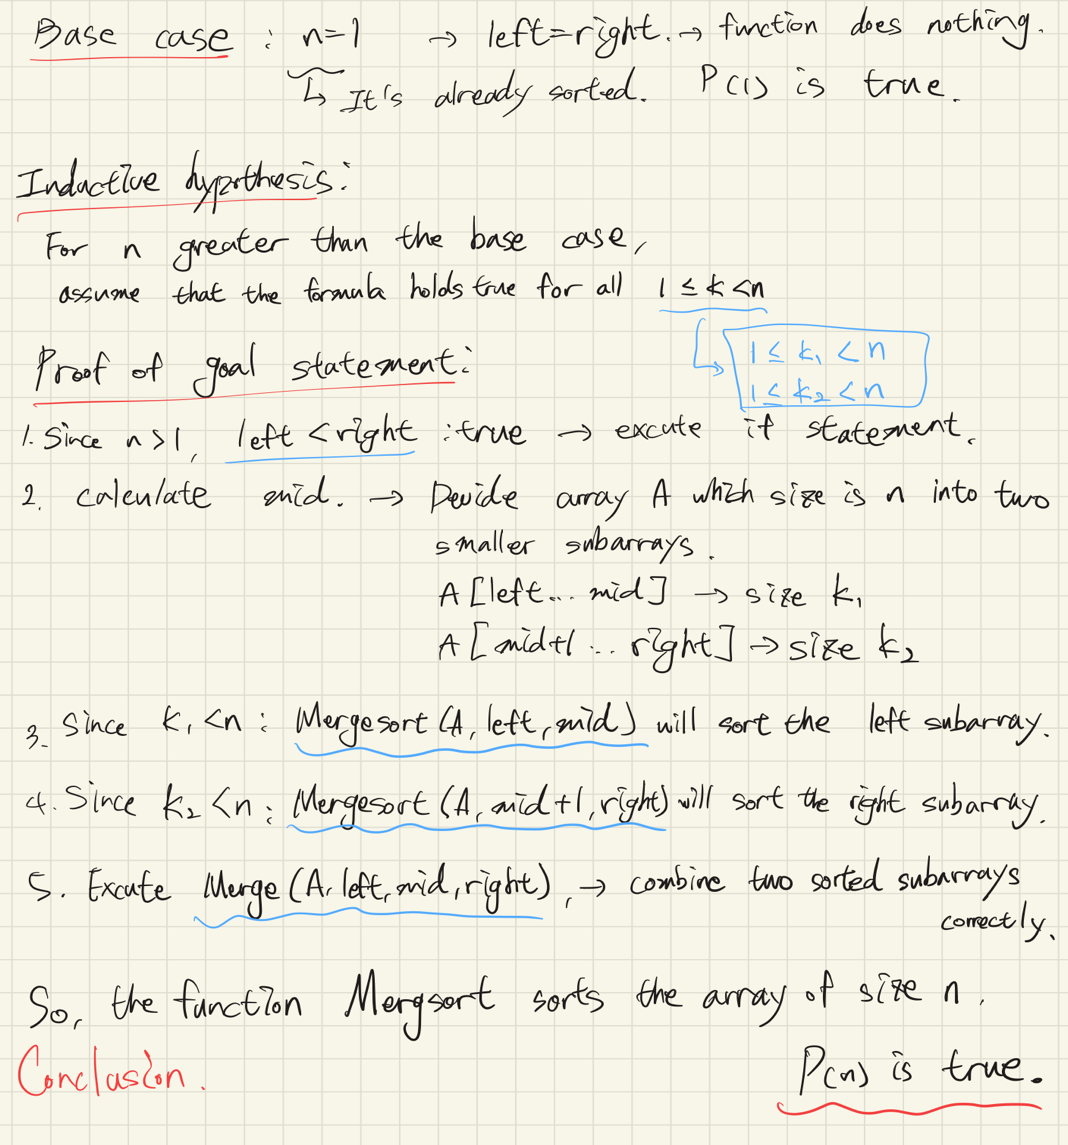 Base case : n=1 → left=right. → function does nothing.
↳ It's already sorted. P(1) is true.
Inductive hypothesis:
For n greater than the base case,
assume that the formula holds true for all 1 ≤ k < n
1 ≤ k₁ < n
1 ≤ k₂ < n
Proof of goal statement:
1. Since n>1, left < right : true → excute if statement.
2. calculate mid. → Devide array A which size is n into two
smaller subarrays.
A [left... mid] → size k₁
A [mid+1 ... right] → size k₂
3. Since k₁ < n : Mergesort (A, left, mid) will sort the left subarray.
4. Since k₂ < n : Mergesort (A, mid+1, right) will sort the right subarray.
5. Excute Merge (A, left, mid, right), → combine two sorted subarrays
correctly.
So, the function Mergsort sorts the array of size n.
Conclasion. P(n) is true.